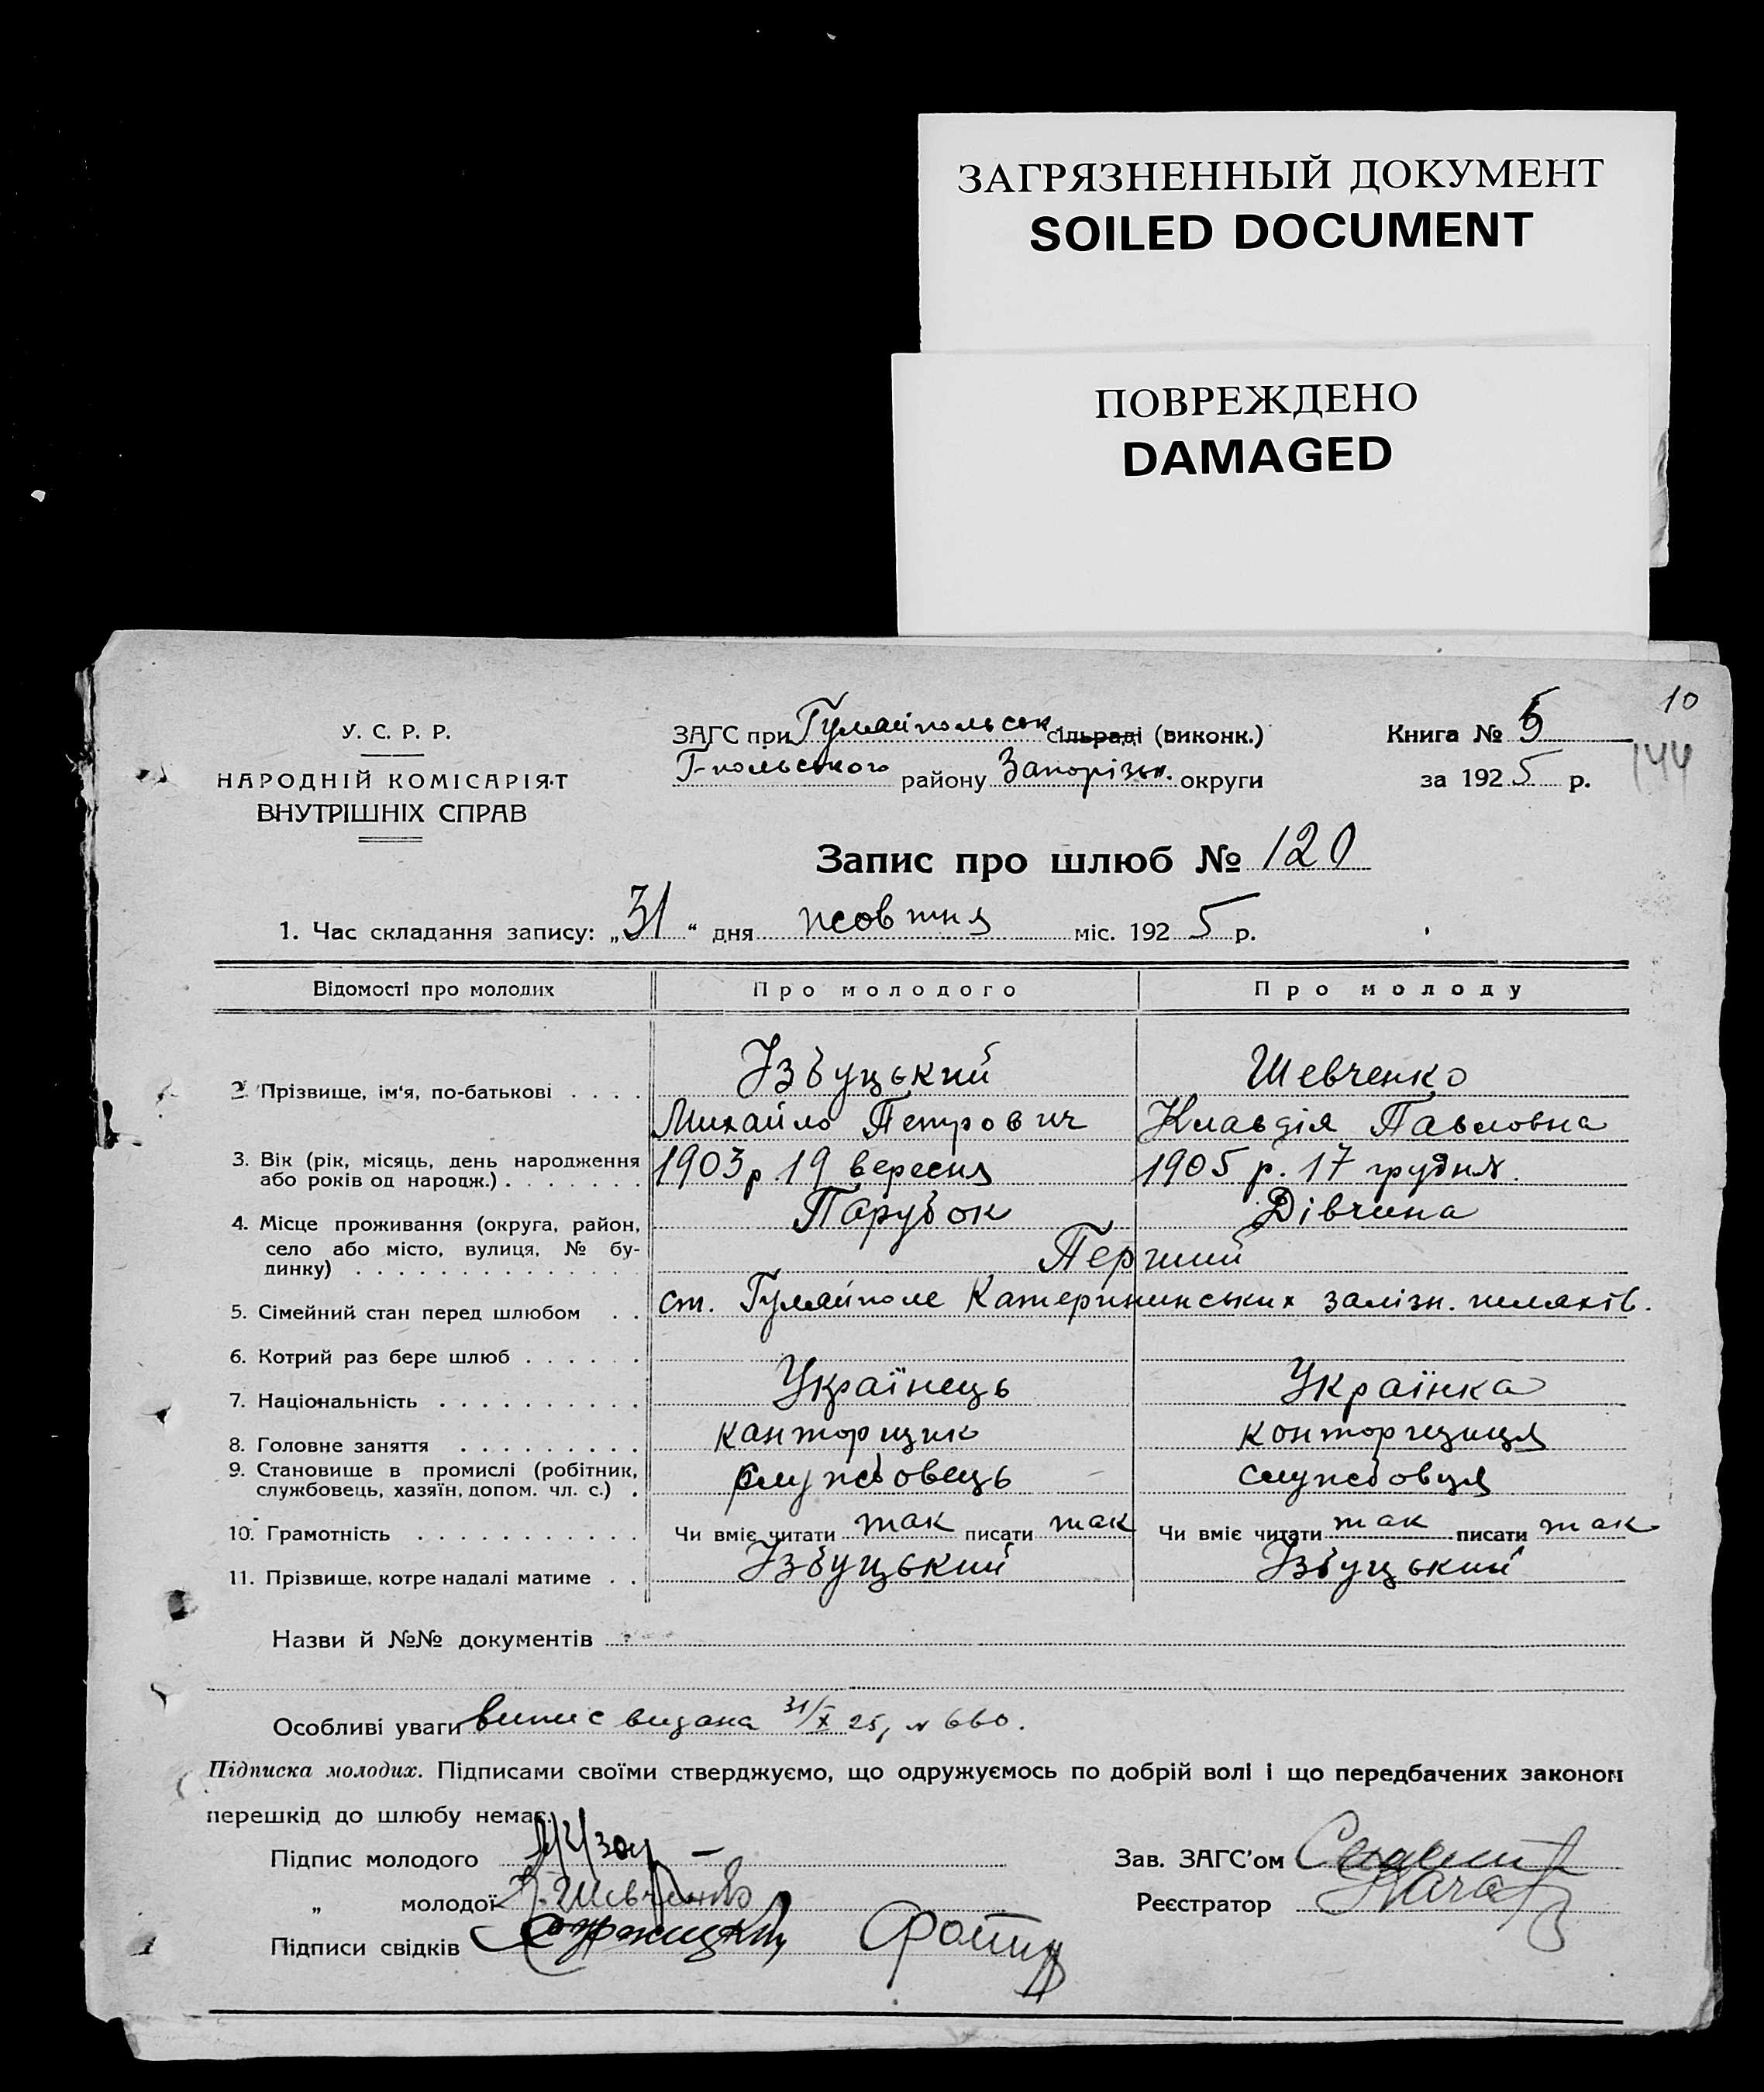 ЗАГРЯЗНЕННЫЙ ДОКУМЕНТ
SOILED DOCUMENT
ПОВРЕЖДЕНО
DAMAGED
10
144
У. С. Р. Р.
НАРОДНІЙ КОМІСАРІЯТ
ВНУТРІШНІХ СПРАВ
ЗАГС при Гуляйпольськ сільраді (виконк.)
Г-польського району Запорізьк. округи
Книга № 5
за 1925 р.
Запис про шлюб № 120
1. Час складання запису: „31“ дня жовтня міс. 1925 р.
Відомості про молодих Про молодого Про молоду
2. Прізвище, ім'я, по-батькові . . . . Ізбуцький Шевченко
Михайло Петрович Клавдія Павловна
3. Вік (рік, місяць, день народження або років од народж.) . . . . . . . 1903 р. 19 вересня 1905 р. 17 грудня.
Парубок Дівчина
4. Місце проживання (округа, район, село або місто, вулиця, № будинку) . . . . . . . . . . . . . Перший
5. Сімейний стан перед шлюбом . . ст. Гуляйполе Катерининських залізн. шляхів.
6. Котрий раз бере шлюб . . . . . .
7. Національність . . . . . . . . . . Українець Українка
8. Головне заняття . . . . . . . . . канторщик конторщиця
9. Становище в промислі (робітник, службовець, хазяїн, допом. чл. с.) . службовець службовця
10. Грамотність . . . . . . . . . . . Чи вміє читати так писати так Чи вміє читати так писати так
11. Прізвище, котре надалі матиме . . Ізбуцький Ізбуцький
Назви й №№ документів
Особливі уваги випис видана 31/X 25, № 660.
Підписка молодих. Підписами своїми стверджуємо, що одружуємось по добрій волі і що передбачених законом
перешкід до шлюбу немає.
Підпис молодого
„ молодої Шевченко
Підписи свідків
Зав. ЗАГС'ом
Реєстратор